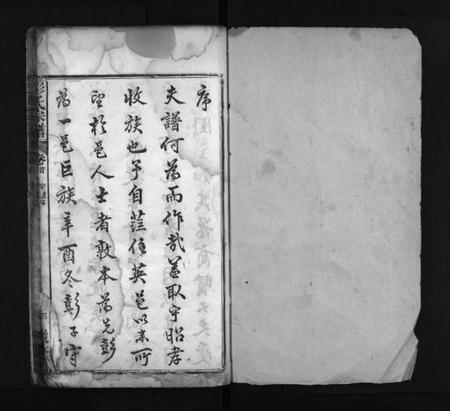 序
夫譜何為而作哉蓋取乎昭孝
收族也予自蒞任英邑以來所
望於邑人士者敦本為先彭
為一邑巨族辛酉冬彭子守
彭氏宗譜 卷首